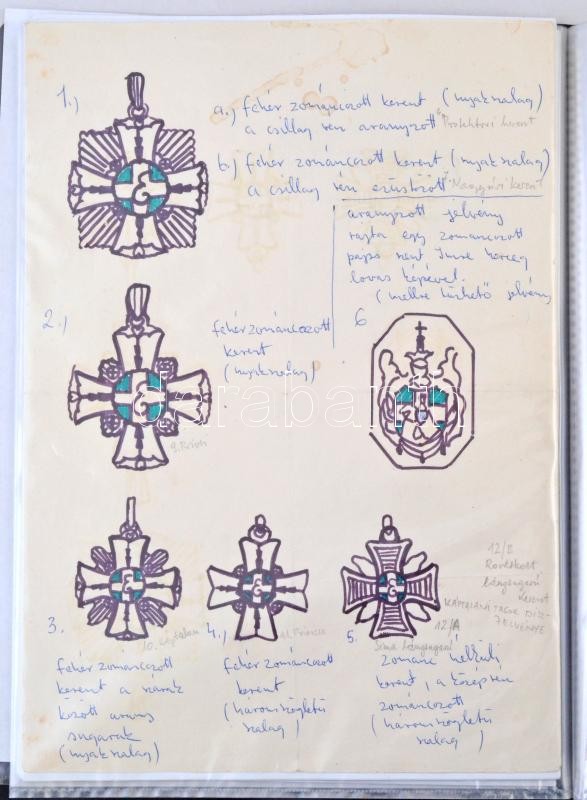 1.)
a.) fehér zománcozott kereszt (nyakszalag)
a csillag rész aranyozott "Protektori kereszt"
b.) fehér zománcozott kereszt (nyakszalag)
a csillag rész ezüstözött "Nagypriori kereszt"
aranyozott jelvény
rajta egy zománcozott
pajzs szent Imre herceg
lovas képével.
(mellre tűzhető jelvény
6
2.)
fehér zománcozott
kereszt
(nyakszalag)
9. Priori
darabanth
12/B
Rovátkolt
lángsugarú
kereszt
KÁPTALANI TAGOK DÍSZ-
JELVÉNYE
12/A
Sima lángsugarú
3.
10. Káptalani
fehér zománcozott
kereszt a szárak
között arany
sugarak
(nyakszalag)
4.)
fehér zománcozott
kereszt
(háromszögletű
szalag)
5.
zománc nélküli
kereszt, a közép rész
zománcozott
(háromszögletű
szalag)